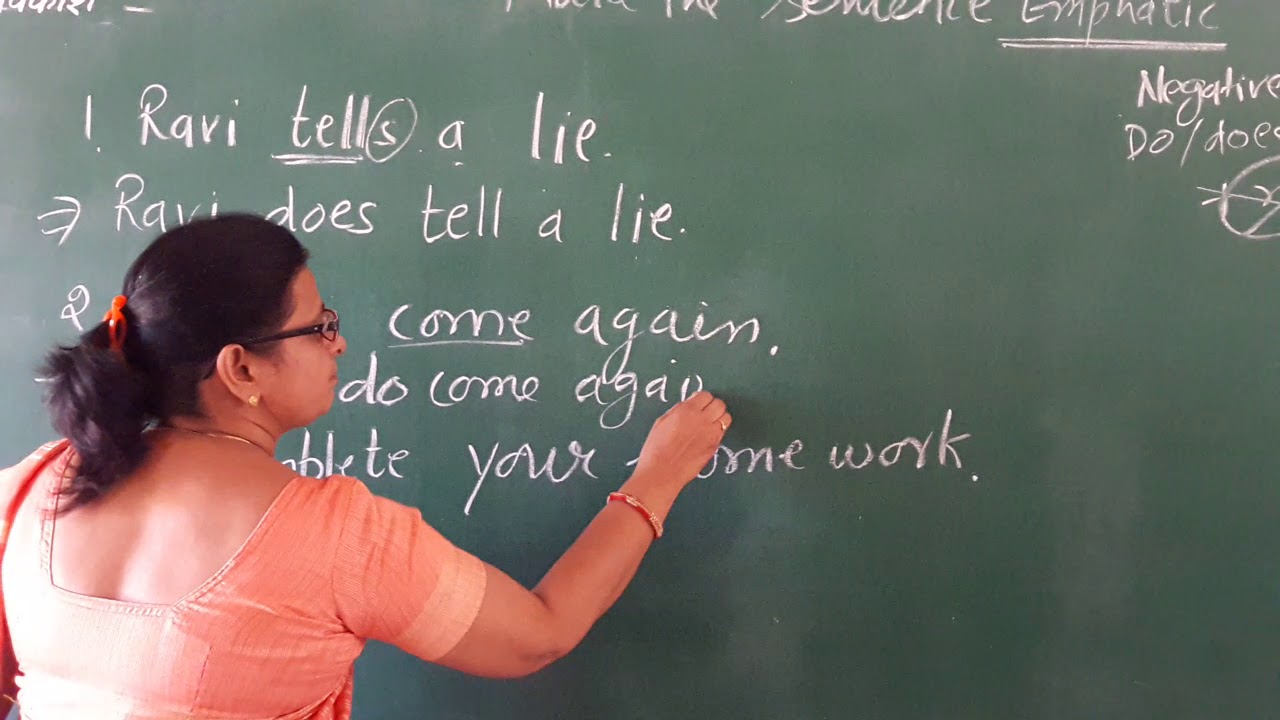 the Sentence Emphatic
Negative
Do/does
1. Ravi tells a lie.
⇒ Ravi does tell a lie.
2 come again.
do come again
your home work.